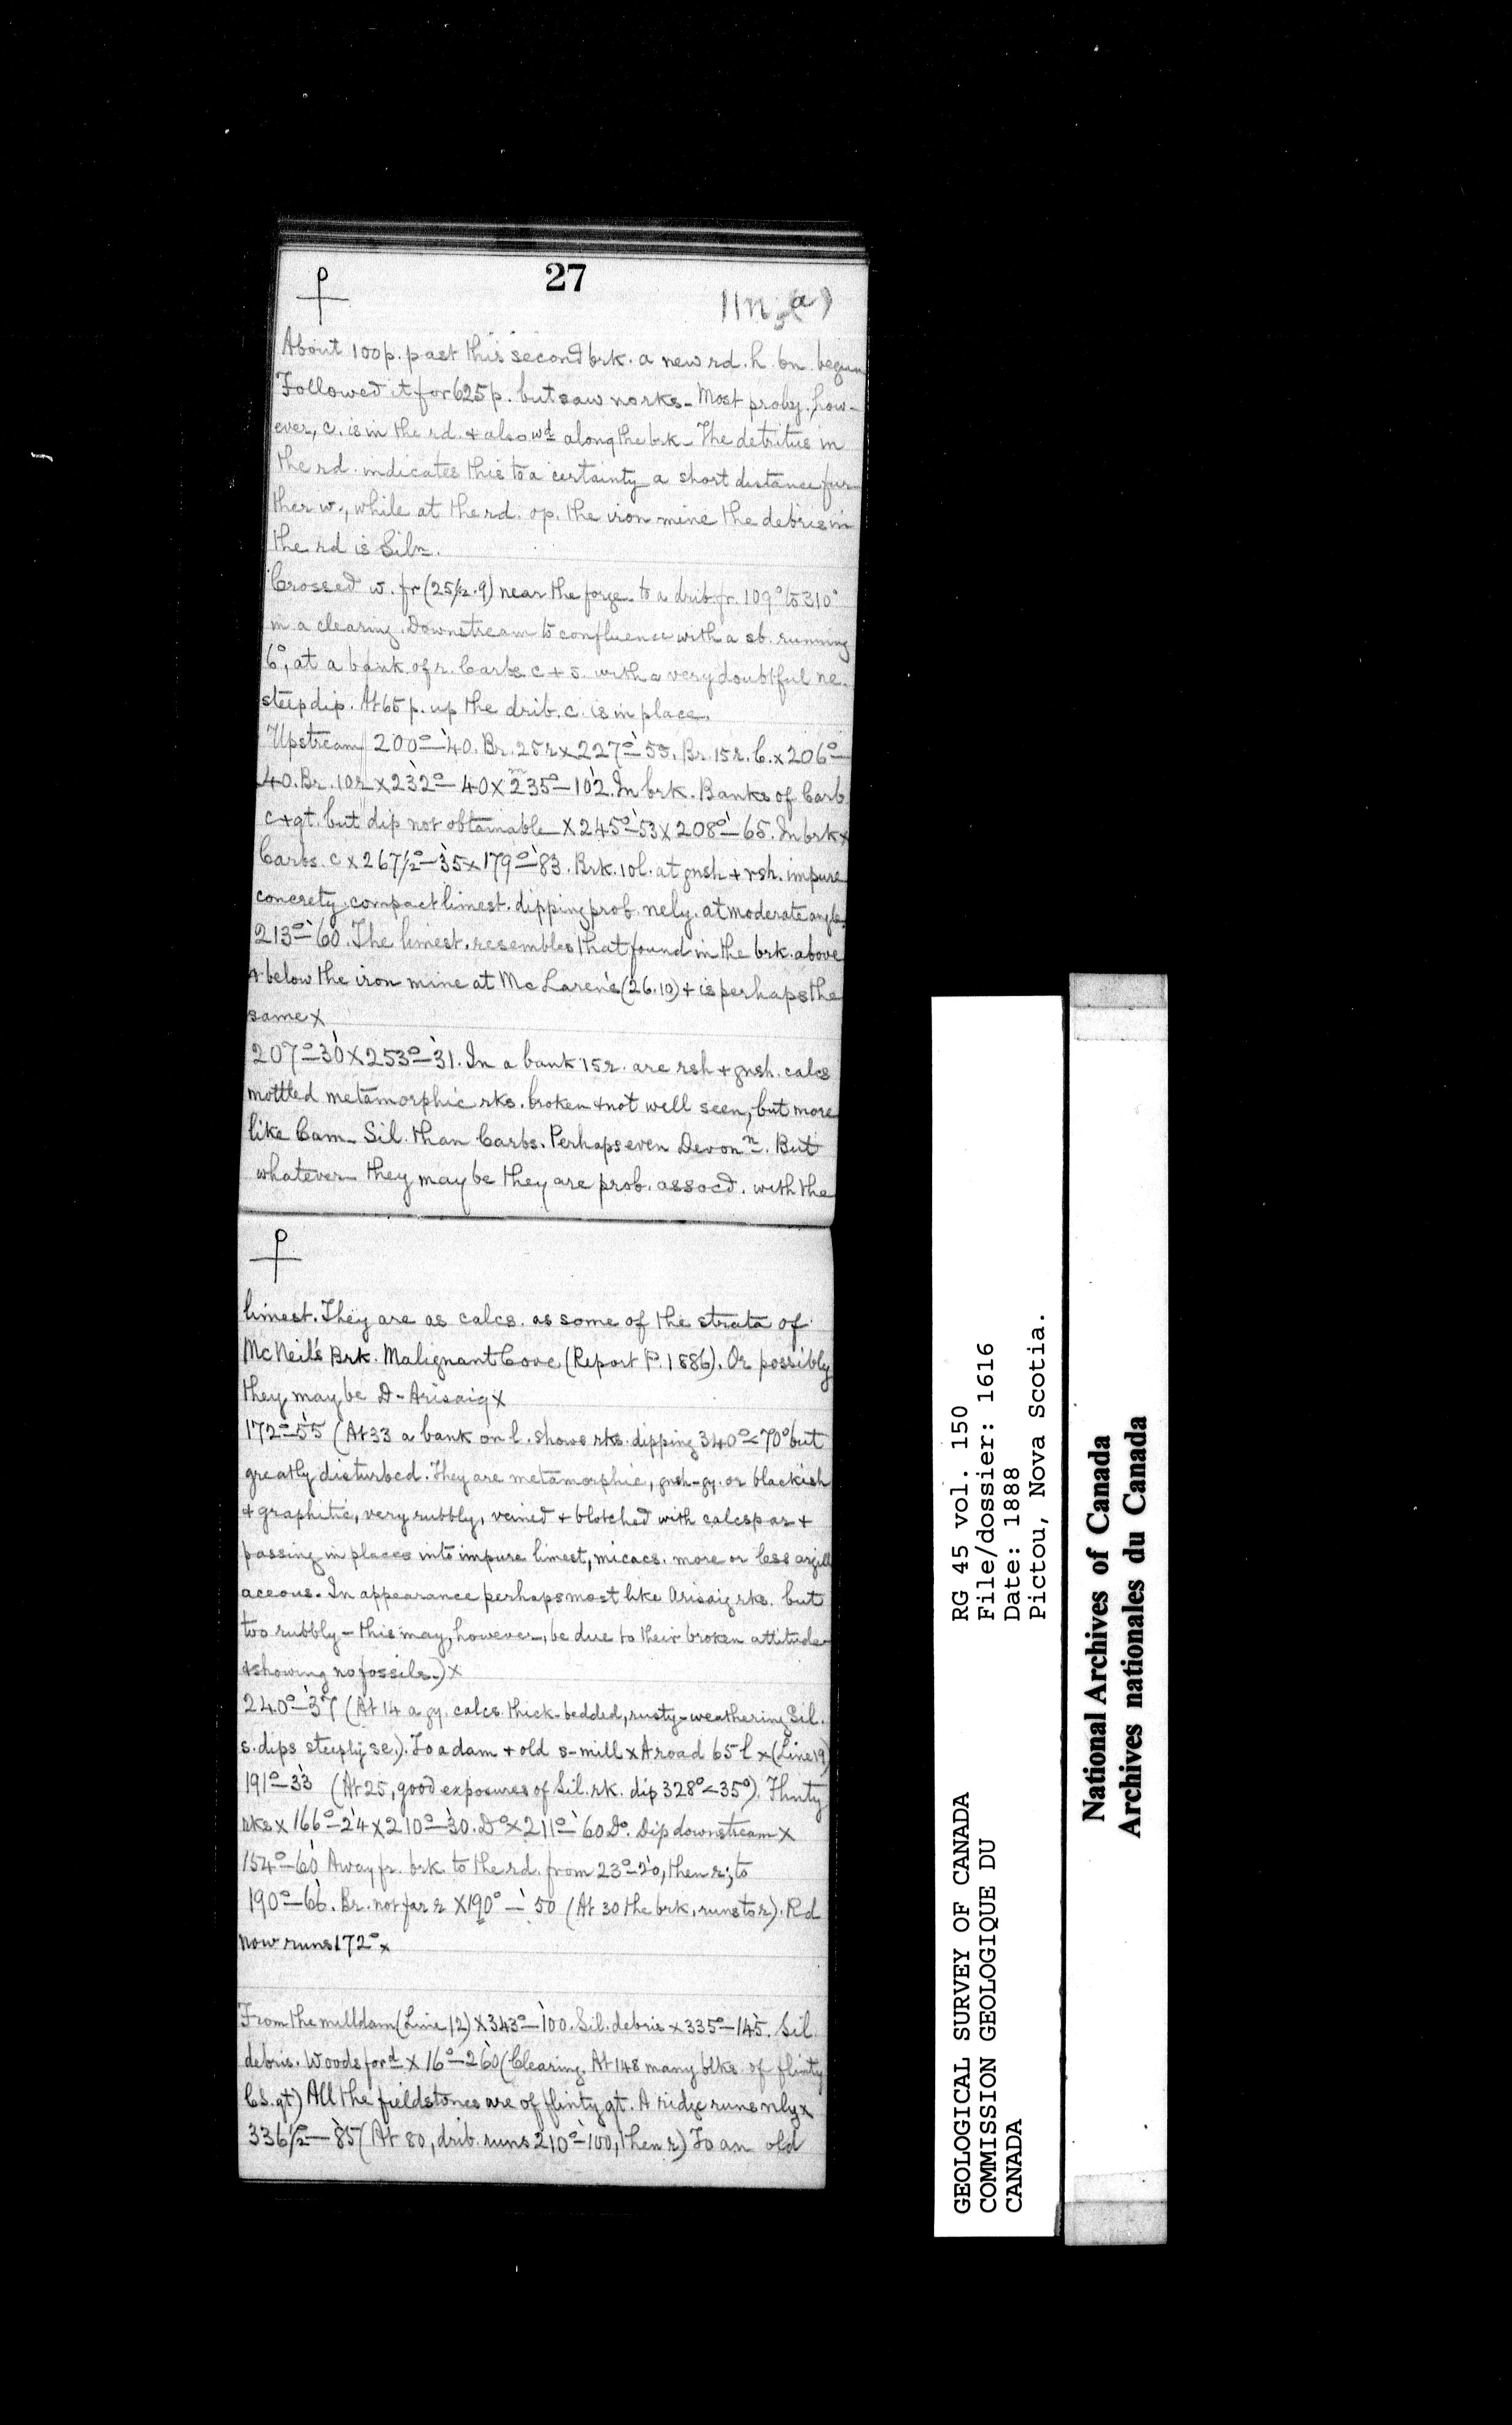 27
11n5(a)
About 100 p. past this second brk. a new rd. h. bn. begun
Followed it for 625 p. but saw no rks - Most proby. how-
ever, c. is in the rd. + also wd along the brk - The detritus in
the rd. indicates this to a certainty a short distance fur-
ther w., while at the rd. op. the iron mine the debris in
the rd is Siln.
Crossed w. fr (25½.9) near the forge to a drib. fr. 109° to 310°
in a clearing. Downstream to confluence with a sb. running
6°, at a bank of r. Carbs. c + s. with a very doubtful ne.
steep dip. At 65 p. up the drib. c. is in place.
Upstream 200°-40. Br. 25 r x 227°-55. Br. 15 r. C. x 206°-
40. Br. 10 r x 232°-40 x 235°-102. In brk. Banks of Carb
c + gt. but dip not obtainable x 245°-53 x 208°-65. In brk x
Carbs. c x 267½°-35 x 179°-83. Brk. 10 l. at gnsh + rsh. impure
concrety. compact limest. dipping prob. nely. at moderate angle.
213°-60. The limest. resembles that found in the brk. above
+ below the iron mine at McLaren's (26.10) + is perhaps the
same x
207°-30 x 253°-31. In a bank 15 r. are rsh + gnsh. calcs
mottled metamorphic rks. broken + not well seen, but more
like Cam-Sil. than Carbs. Perhaps even Devonn. But
whatever they may be they are prob. assocd. with the
limest. They are as calcs. as some of the strata of
McNeil's Brk. Malignant Cove (Report P. 1886). Or possibly
they may be D-Arisaig x
172°-55 (At 33 a bank on l. shows rks. dipping 340°<70° but
greatly disturbed. They are metamorphic, gnsh-gy. or blackish
+ graphitic, very rubbly, veined + blotched with calcspar +
passing in places into impure limest, micacs. more or less argill
aceous. In appearance perhaps most like Arisaig rks. but
too rubbly - this may, however, be due to their broken attitude
+ showing no fossils.) x
240°-37 (At 14 a gy. calcs. thick-bedded, rusty-weathering Sil.
s. dips steeply se.). To a dam + old s-mill x A road 65 l x (Line 19)
191°-33 (At 25, good exposures of Sil. rk. dip 328°<35°). Flinty
rks x 166°-24 x 210°-30. Do x 211°-60 Do. Dip downstream x
154°-60 Away fr. brk. to the rd. from 23°-20, then r; to
190°-66. Br. not far r x 190°-50 (At 30 the brk, runs to r). Rd
now runs 172° x
From the milldam (Line 12) x 343°-100. Sil. debris x 335°-145. Sil.
debris. Woods ford x 16°-260 (Clearing. At 148 many blks. of flinty
CS. gt) All the fieldstones are of flinty gt. A ridge runs nly x
336½°-85 (At 80, drib. runs 210°-100, then r) To an old
GEOLOGICAL SURVEY OF CANADA
COMMISSION GEOLOGIQUE DU
CANADA
RG 45 vol. 150
File/dossier: 1616
Date: 1888
Pictou, Nova Scotia.
National Archives of Canada
Archives nationales du Canada